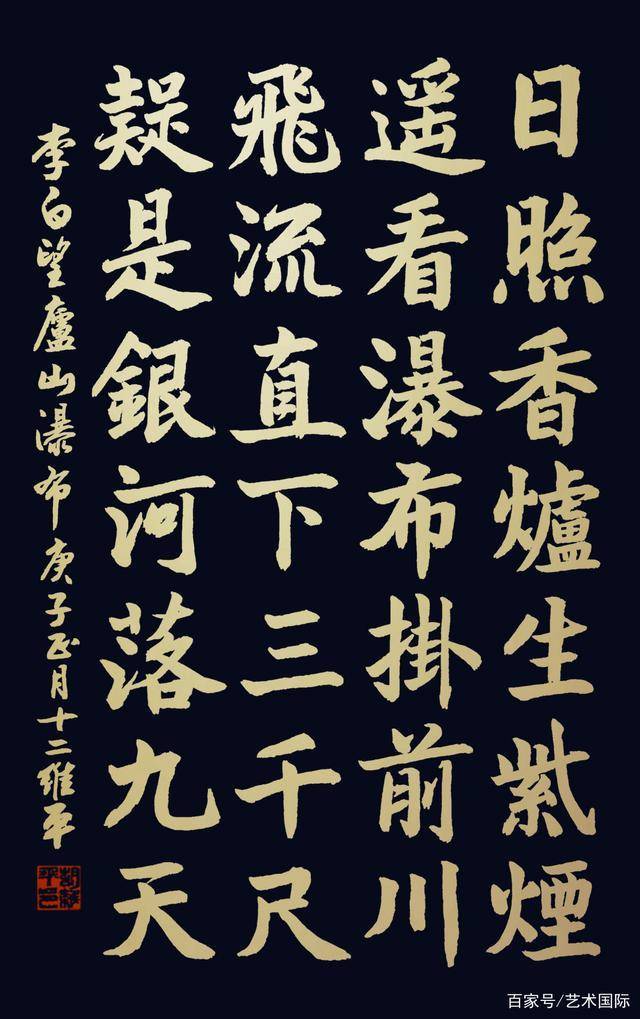 日照香爐生紫煙
遥看瀑布掛前川
飛流直下三千尺
疑是銀河落九天
李白望廬山瀑布庚子正月十二維平
百家号/艺术国际